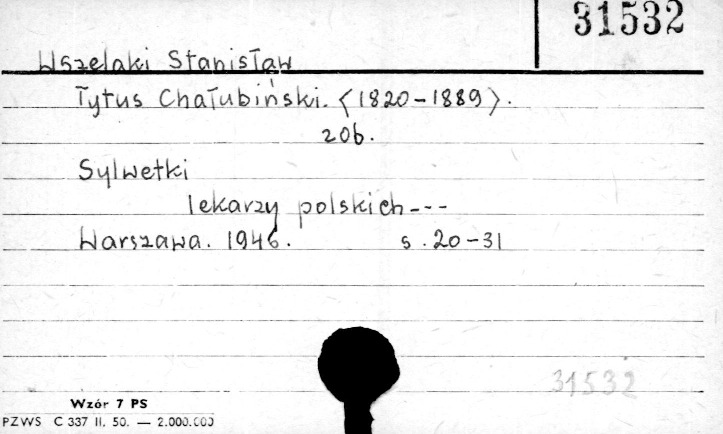 31532
Wszelaki Stanisław
Tytus Chałubiński. <1820-1889>.
zob.
Sylwetki
lekarzy polskich---
Warszawa. 1946. s. 20-31
31532
Wzór 7 PS
PZWS C 337 II. 50. — 2.000.000